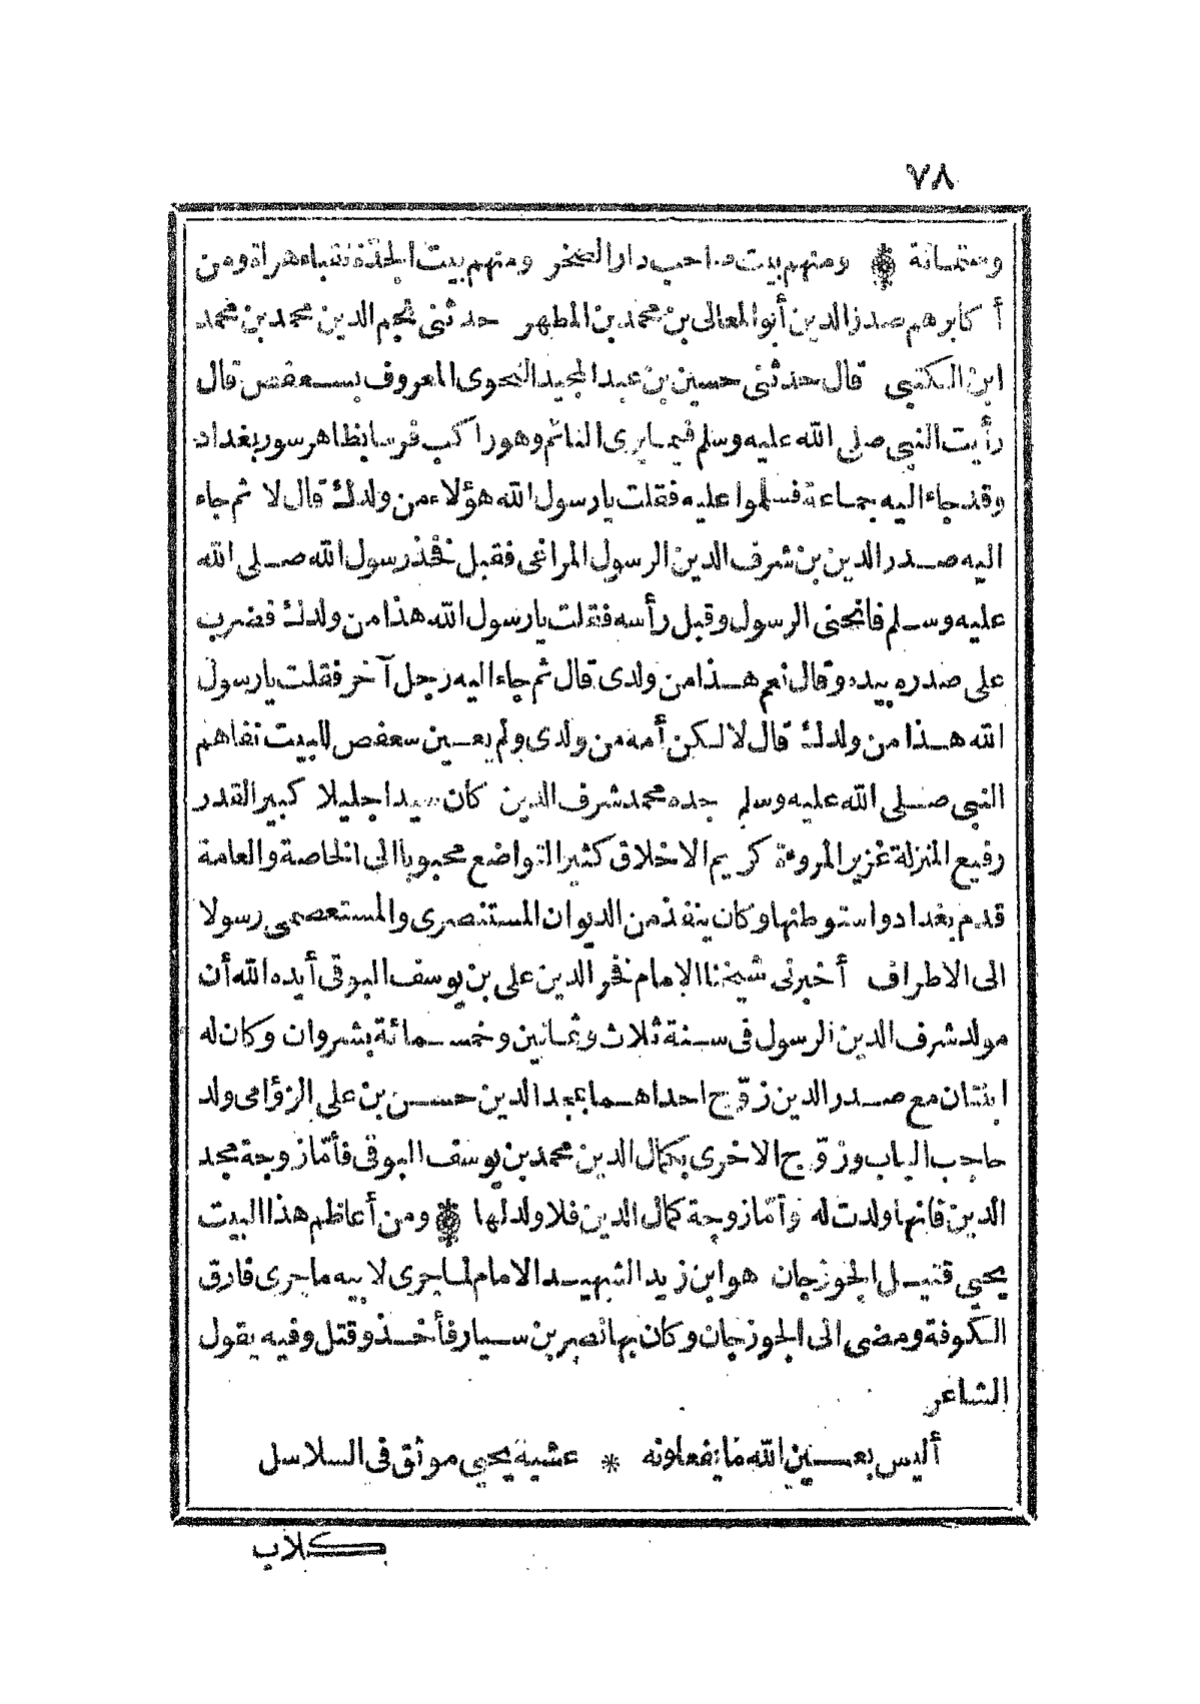 ٧٨
وستمائة ۞ ومنهم بيت صاحب دار الصخر ومنهم بيت الجدّة نقباء هراة ومن
أكابرهم صدر الدين أبو المعالى بن محمد بن المطهر حدثنى نجم الدين محمد بن محمد
ابن الكتبى قال حدثنى حسين بن عبد المجيد النحوى المعروف بسعفص قال
رأيت النبى صلى الله عليه وسلم فيما يرى النائم وهو راكب فرسا بظاهر سور بغداد
وقد جاء اليه جماعة فسلموا عليه فقلت يا رسول الله هؤلاء من ولدك قال لا ثم جاء
اليه صدر الدين بن شرف الدين الرسول المراغى فقبل فخذ رسول الله صلى الله
عليه وسلم فانحنى الرسول وقبل رأسه فقلت يا رسول الله هذا من ولدك فضرب
على صدره بيده وقال نعم هذا من ولدى قال ثم جاء اليه رجل آخر فقلت يا رسول
الله هذا من ولدك قال لا لكن أمه من ولدى ولم يعين سعفص للبيت نفاهم
النبى صلى الله عليه وسلم جده محمد شرف الدين كان سيدا جليلا كبير القدر
رفيع المنزلة غزير المروءة كريم الاخلاق كثير التواضع محبوبا الى الخاصة والعامة
قدم بغداد واستوطنها وكان ينفذ من الديوان المستنصرى والمستعصمى رسولا
الى الاطراف أخبرنى شيخنا الامام فخر الدين على بن يوسف البوقى أيده الله أن
مولد شرف الدين الرسول فى سنة ثلاث وثمانين وخمسمائة بشروان وكان له
ابنتان مع صدر الدين زوّج احداهما بمجد الدين حسن بن على الزؤامى ولد
حاجب الباب وزوّج الاخرى بكمال الدين محمد بن يوسف البوقى فأمّا زوجة مجد
الدين فانها ولدت له وأمّا زوجة كمال الدين فلا ولد لها ۞ ومن أعاظم هذا البيت
يحيى قتيل الجوزجان هو ابن زيد الشهيد الامام لما جرى لابيه ما جرى فارق
الكوفة ومضى الى الجوزجان وكان بها نصر بن سيار فأخذ وقتل وفيه يقول
الشاعر
أليس بعين الله ما يفعلونه * عشية يحيى موثق فى السلاسل
كلاب